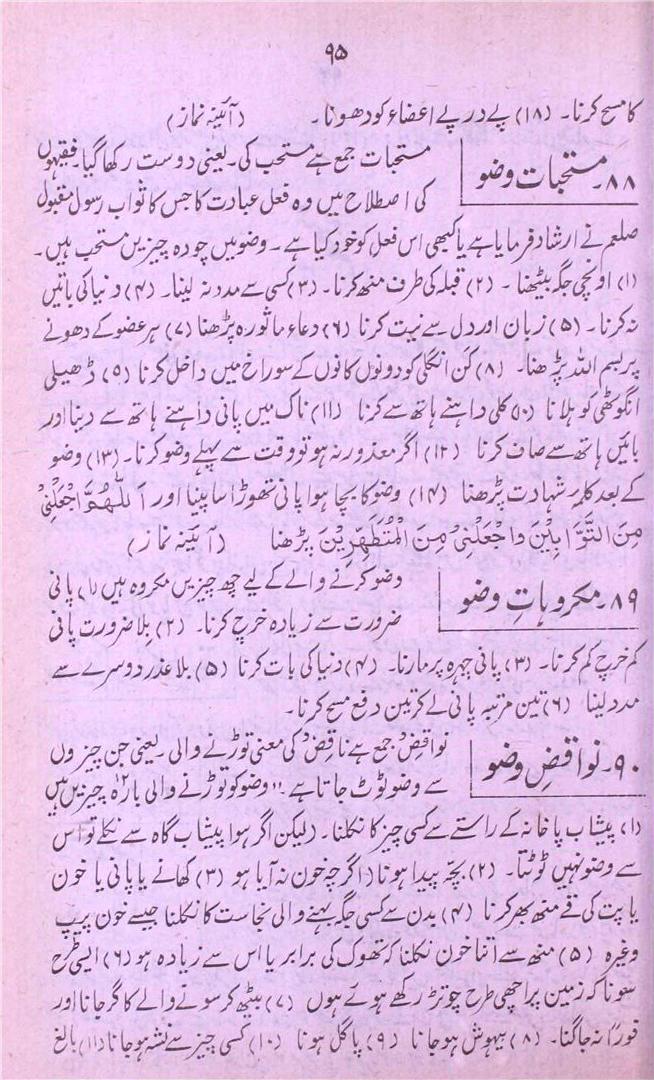 ۹۵
کا مسح کرنا۔ (۱۸) پے در پے اعضاء کو دھونا۔ (آئینہ نماز)
۸۸۔ مستحبات وضو
مستحبات جمع ہے مستحب کی۔ یعنی دوست رکھا گیا۔ فقیہوں
کی اصطلاح میں وہ فعل عبادت کا جس کا ثواب رسول مقبول
صلعم نے ارشاد فرمایا ہے یا کبھی اس فعل کو خود کیا ہے۔ وضو میں چودہ چیزیں مستحب ہیں۔
(۱) اونچی جگہ بیٹھنا۔ (۲) قبلہ کی طرف منھ کرنا۔ (۳) کسی سے مدد نہ لینا۔ (۴) دنیا کی باتیں
نہ کرنا۔ (۵) زبان اور دل سے نیت کرنا (۶) دعاء ماثورہ پڑھنا (۷) ہر عضو کے دھونے
پر بسم اللہ پڑھنا۔ (۸) کن انگلی کو دونوں کانوں کے سوراخ میں داخل کرنا (۹) ڈھیلی
انگوٹھی کو ہلانا (۱۰) کلی داہنے ہاتھ سے کرنا (۱۱) ناک میں پانی داہنے ہاتھ سے دینا اور
بائیں ہاتھ سے صاف کرنا (۱۲) اگر معذور نہ ہو تو وقت سے پہلے وضو کرنا۔ (۱۳) وضو
کے بعد کلمہ شہادت پڑھنا (۱۴) وضو کا بچا ہوا پانی تھوڑا سا پینا اور اَللّٰھُمَّ اجْعَلْنِیْ
مِنَ التَّوَّابِیْنَ وَاجْعَلْنِیْ مِنَ الْمُتَطَھِّرِیْنَ پڑھنا (آئینہ نماز)
۸۹۔ مکروہاتِ وضو
وضو کرنے والے کے لیے چھ چیزیں مکروہ ہیں (۱) پانی
ضرورت سے زیادہ خرچ کرنا۔ (۲) بلا ضرورت پانی
کم خرچ کم کرنا۔ (۳) پانی چہرہ پر مارنا۔ (۴) دنیا کی بات کرنا (۵) بلا عذر دوسرے سے
مدد لینا (۶) تین مرتبہ پانی لے کر تین دفع مسح کرنا۔
۹۰۔ نواقضِ وضو
نواقض جمع ہے ناقض کی معنی توڑنے والی۔ یعنی جن چیزوں
سے وضو ٹوٹ جاتا ہے۔ وضو کو توڑنے والی بارہ۱۲ چیزیں ہیں
(۱) پیشاب پاخانہ کے راستے سے کسی چیز کا نکلنا۔ (لیکن اگر ہوا پیشاب گاہ سے نکلے تو اس
سے وضو نہیں ٹوٹتا۔ (۲) بچہ پیدا ہونا (اگرچہ خون نہ آیا ہو (۳) کھانے یا پانی یا خون
یا پت کی قے منھ بھر کرنا (۴) بدن سے کسی جگہ بہنے والی نجاست کا نکلنا جیسے خون پیپ
وغیرہ (۵) منھ سے اتنا خون نکلنا کہ تھوک کی برابر یا اس سے زیادہ ہو (۶) ایسی طرح
سونا کہ زمین پر اچھی طرح چوتڑ رکھے ہوئے ہوں (۷) بیٹھ کر سونے والے کا گر جانا اور
فوراً نہ جاگنا۔ (۸) بیہوش ہو جانا (۹) پاگل ہونا (۱۰) کسی چیز سے نشہ ہو جانا (۱۱) بالغ